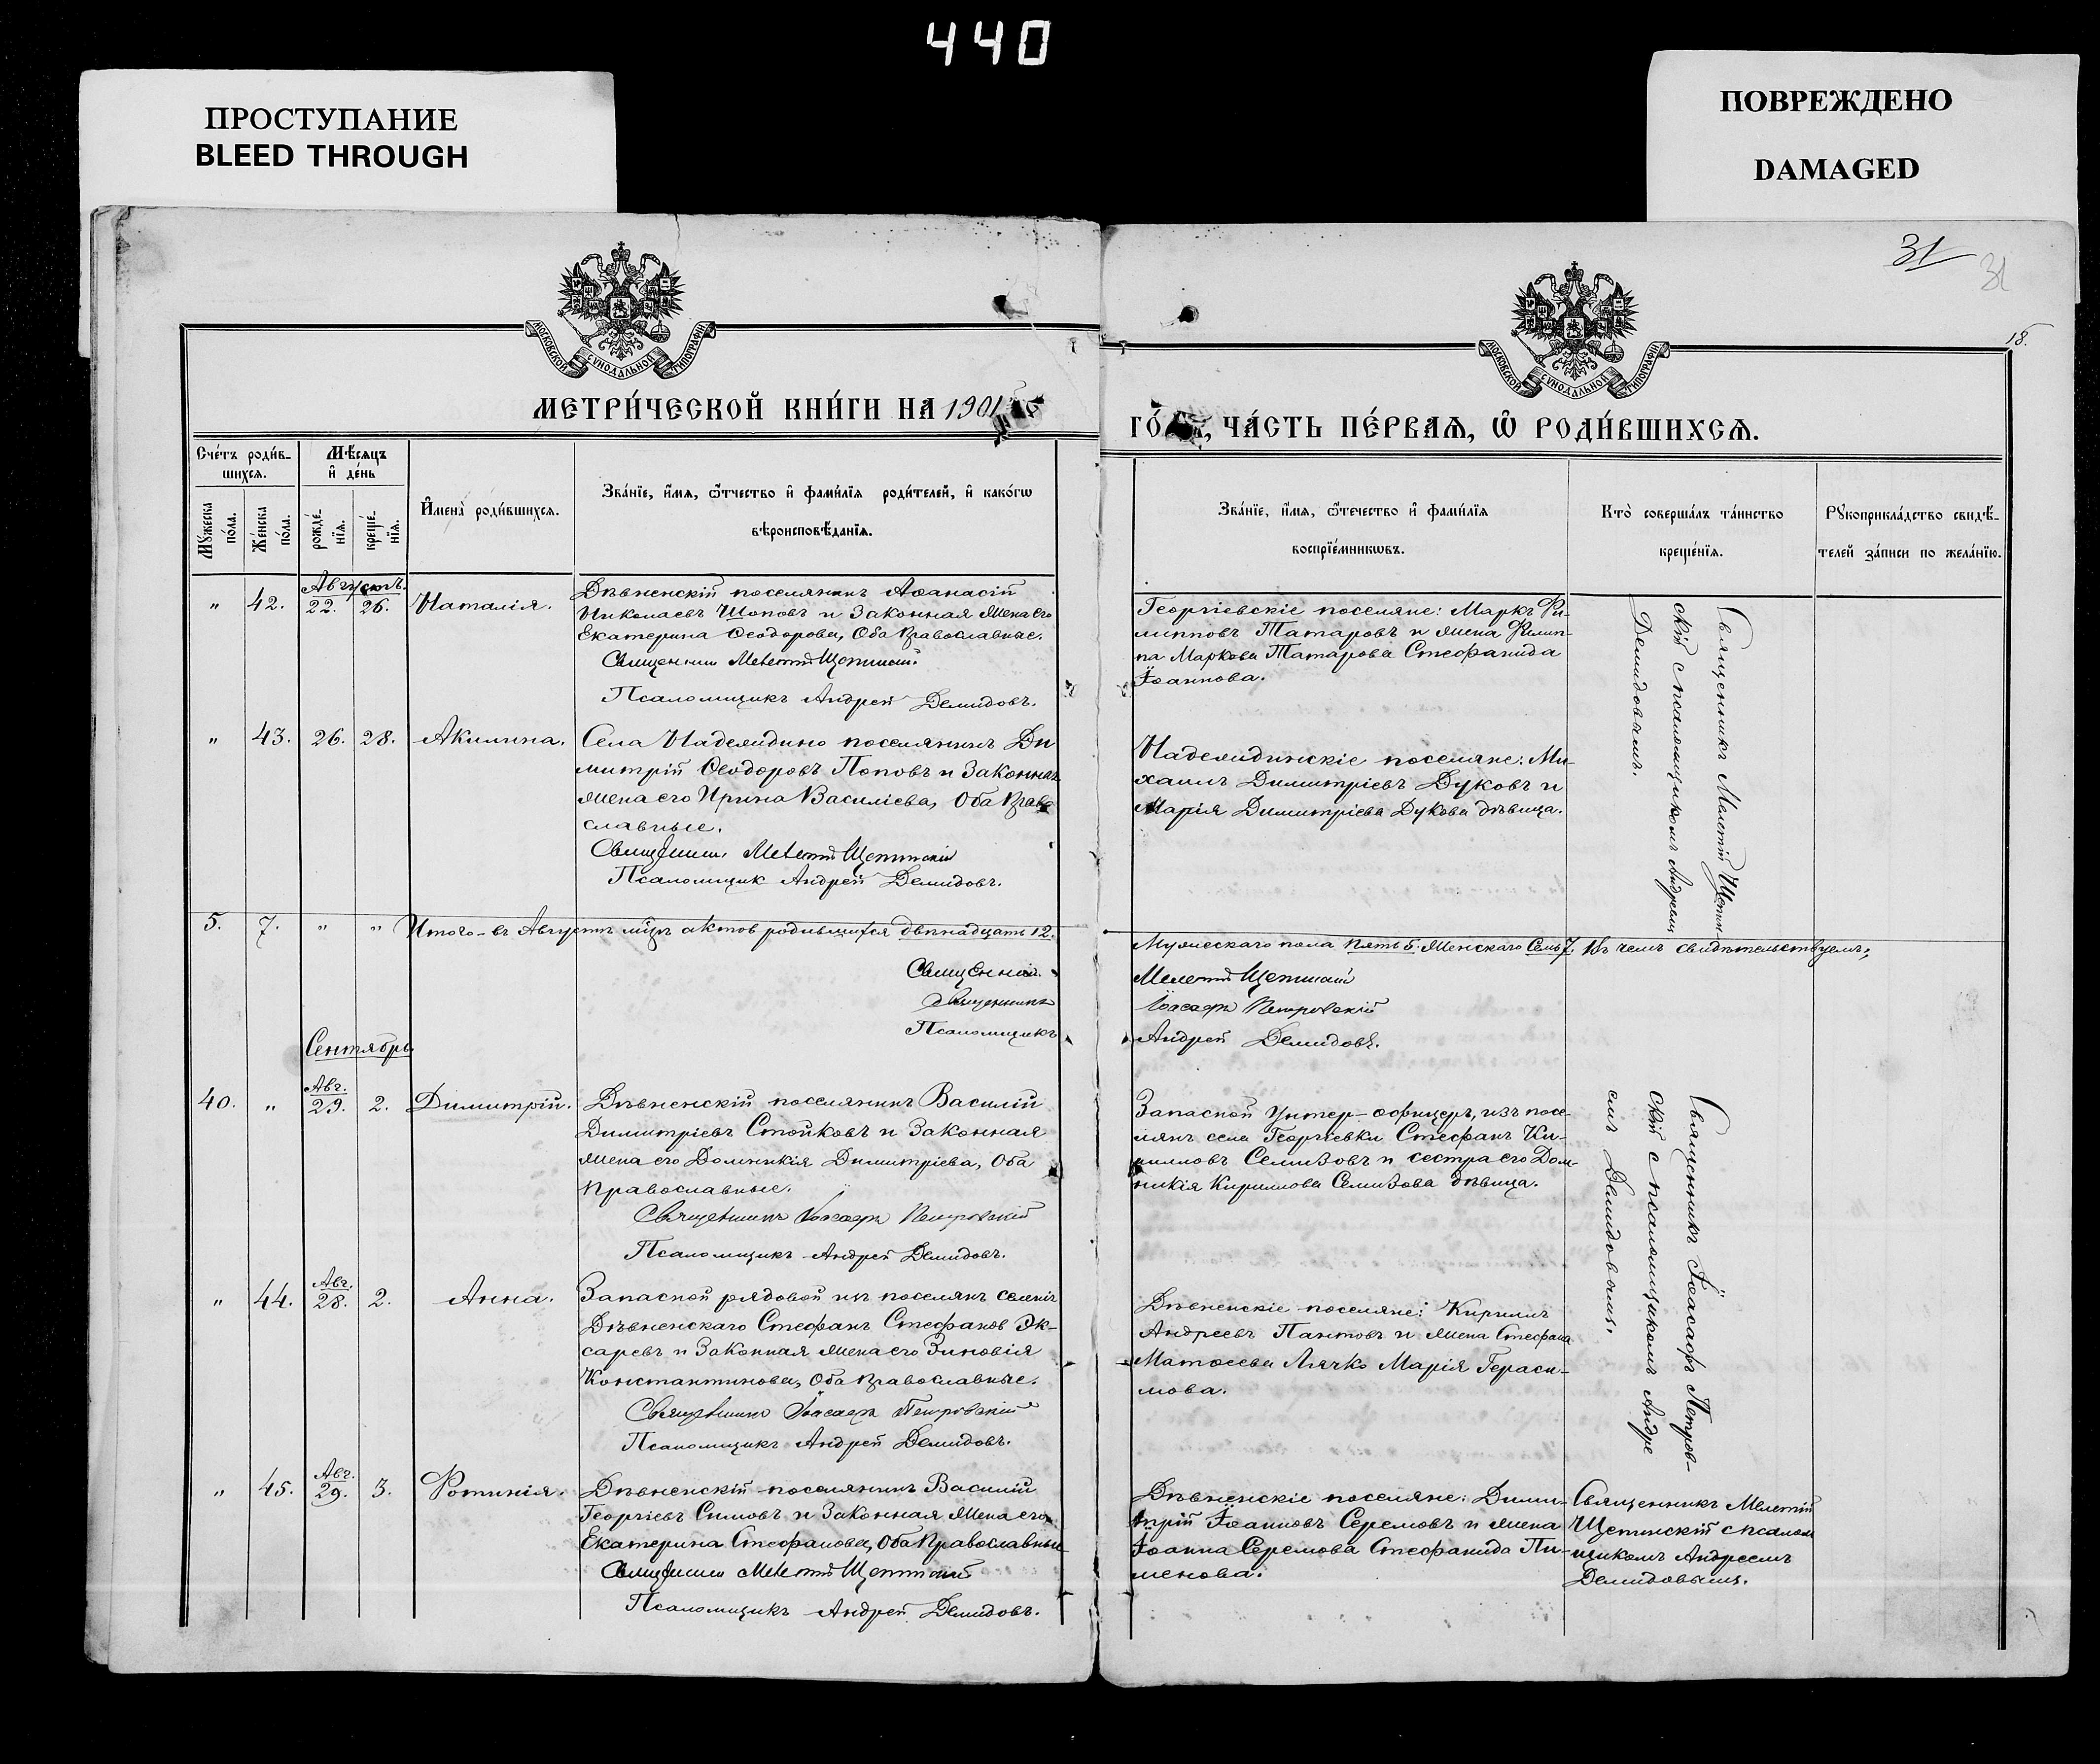 440
ПРОСТУПАНИЕ
BLEED THROUGH
ПОВРЕЖДЕНО
DAMAGED
31
31
18.
МОСКОВСКОЙ СѴНОДАЛЬНОЙ ТИПОГРАФІИ
МОСКОВСКОЙ СѴНОДАЛЬНОЙ ТИПОГРАФІИ
МЕТРИ́ЧЕСКОЙ КНИ́ГИ НА 1901
ГО́ , ЧА́СТЬ ПЕ́РВАѦ, Ѡ҃ РОДИ́ВШИХСѦ.
Сче́тъ роди́в-
шихсѧ.
Мѣ́сѧцъ
и҆ де́нь
Мꙋ́жеска
по́ла.
Же́нска
по́ла.
рожде́-
нїѧ.
креще́-
нїѧ.
И҆мена̀ роди́вшихсѧ.
Зва́нїе, и҆́мѧ, ѿтчество и҆ фами́лїѧ роди́телей, и҆ како́гѡ
вѣроисповѣ́данїѧ.
Зва́нїе, и҆́мѧ, ѿтечество и҆ фами́лїѧ
воспрїе́мникѡвъ.
Кто̀ соверша́лъ та́инство
креще́нїѧ.
Рꙋкоприкла́дство свидѣ́-
телей за́писи по жела́нїю.
Августъ.
" 42. 22. 26. Наталія.
Дѣвненскій поселянинъ Аѳанасій
Николаевъ Шоповъ и законная жена его
Екатерина Ѳеодорова, оба православные.
Священникъ Мелетій Щетинскій.
Псаломщикъ Андрей Демидовъ.
Георгіевскіе поселяне: Маркъ Фи-
липповъ Татаровъ и жена Филип-
па Маркова Татарова Стефанида
Іоаннова.
Священникъ Мелетій Щетин
скій с псаломщикомъ Андреемъ
Демидовымъ.
" 43. 26. 28. Акилина.
Села Надеждино поселянинъ Ди
митрій Ѳеодоровъ Поповъ и законная
жена его Ирина Василіева, оба право
славные.
Священникъ Мелетій Щетинскій
Псаломщик Андрей Демидовъ.
Надеждинскіе поселяне: Ми-
хаилъ Димитріевъ Дуковъ и
Марія Димитріева Дукова дѣвица.
5. 7. " " Итого въ Августѣ мѣцѣ актов родившихся двѣнадцать 12.
Мужескаго пола пять 5. Женскаго семь 7. Въ чемъ свидѣтельствуемъ:
Священникъ
Мелетій Щетинскій
Священникъ
Іоасафъ Петровскій
Псаломщикъ
Андрей Демидовъ.
Сентябрь
40. " Авг. 29. 2. Димитрій.
Дѣвненскій поселянинъ Василій
Димитріевъ Стойковъ и законная
жена его Домникія Димитріева, оба
православные.
Священникъ Іоасафъ Петровскій
Псаломщикъ Андрей Демидовъ.
Запасной унтер-офицеръ, изъ посе-
лянъ села Георгіевки Стефанъ Ки-
рилловъ Семизовъ и сестра его Дом-
никія Кириллова Семизова дѣвица.
Священникъ Іоасафъ Петров-
скій с псаломщикомъ Андре
емъ Демидовымъ.
" 44. Авг. 28. 2. Анна.
Запасной рядовой изъ поселянъ селенія
Дѣвненскаго Стефанъ Стефанов Эк-
саревъ и законная жена его Зиновія
Константинова, оба православные.
Священникъ Іоасафъ Петровскій
Псаломщикъ Андрей Демидовъ.
Дѣвненскіе поселяне: Кириллъ
Андреевъ Пантовъ и жена Стефана
Матѳеева Лячко Марія Гераси-
мова.
" 45. Авг. 29. 3. Фотинія.
Дѣвненскій поселянинъ Василій
Георгіевъ Симовъ и законная жена его
Екатерина Стефанова, оба православные
Священникъ Мелетій Щетинскій
Псаломщикъ Андрей Демидовъ.
Дѣвненскіе поселяне: Дими-
трій Іоанновъ Серемовъ и жена
Іоанна Серемова Стефанида Пи-
менова.
Священникъ Мелетій
Щетинскій с псалом
щикомъ Андреемъ
Демидовымъ.